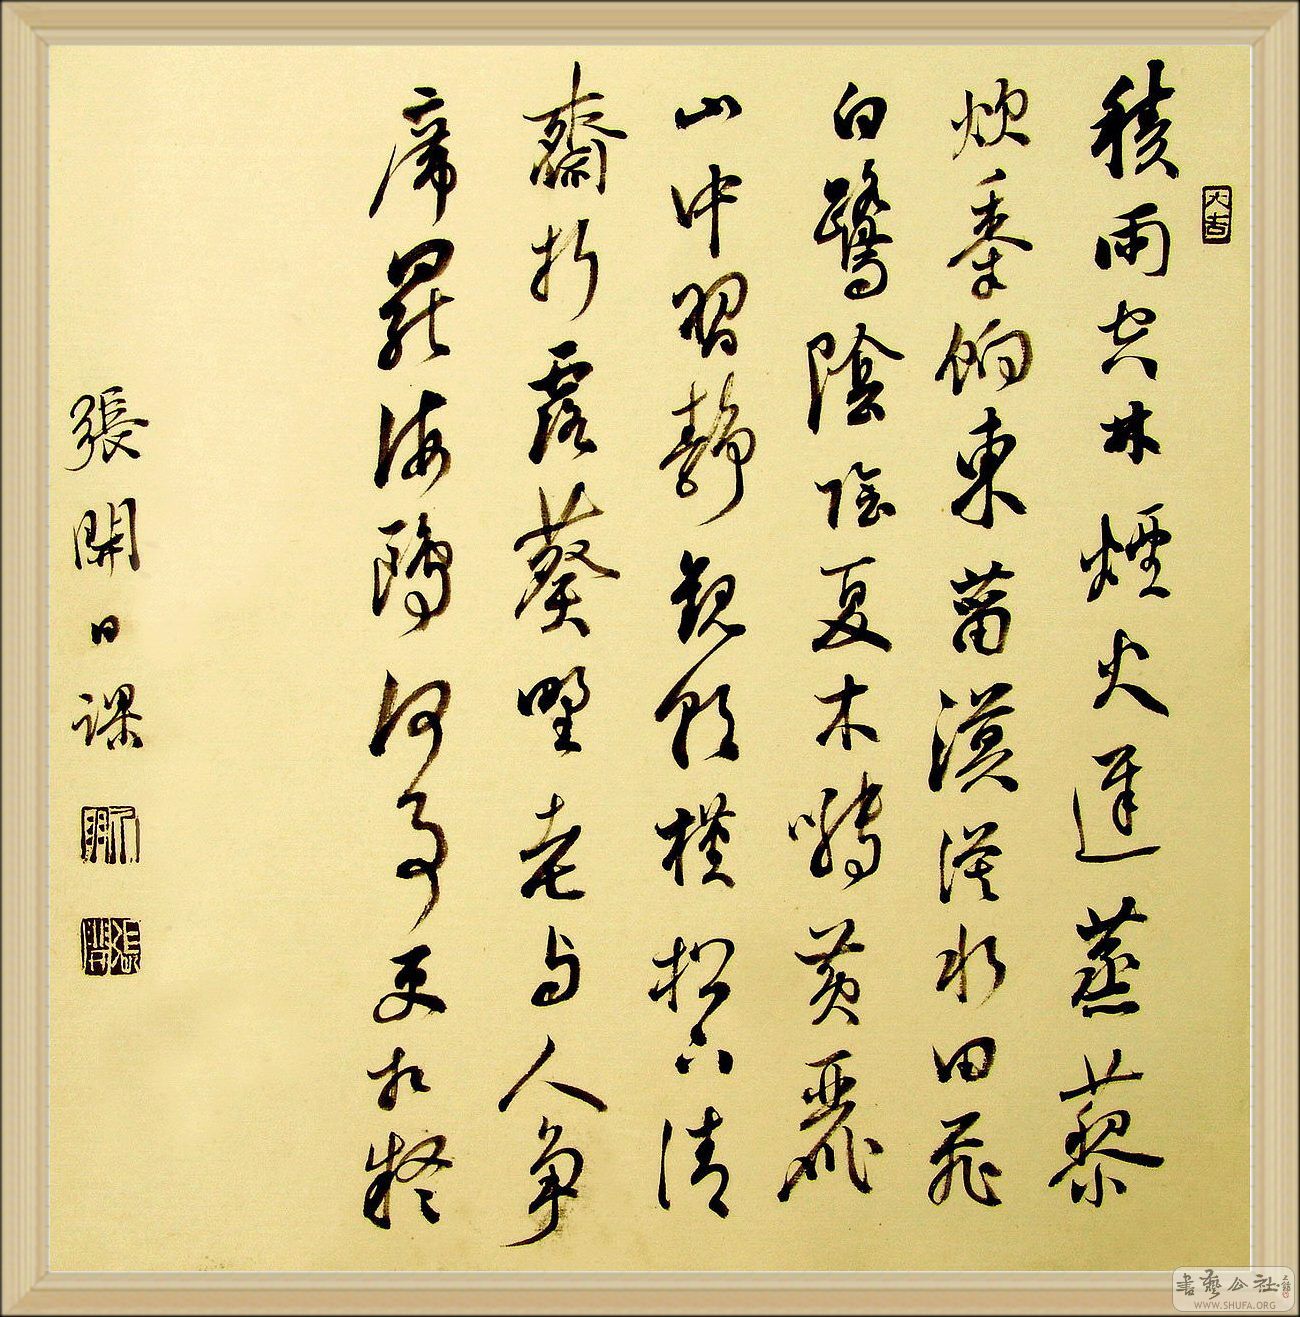 大吉
積雨空林煙火遲蒸藜
炊黍餉東菑漠漠水田飛
白鷺陰陰夏木囀黃鸝
山中習靜觀朝槿松下清
齋折露葵野老与人爭
席罷海鷗何事更相疑
張開日課
張開
書藝公社
WWW.SHUFA.ORG